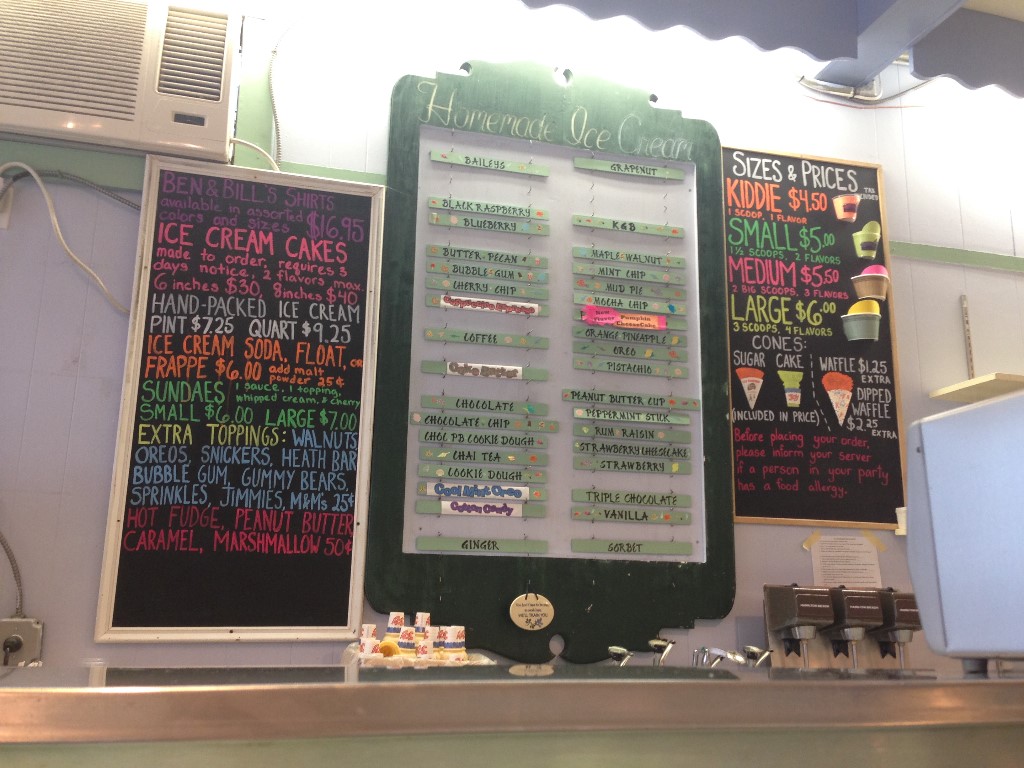 BEN & BILL'S SHIRTS
available in assorted
colors and sizes $16.95
ICE CREAM CAKES
made to order, requires 3
days notice, 2 flavors max.
6 inches $30, 8 inches $40
HAND-PACKED ICE CREAM
PINT $7.25 QUART $9.25
ICE CREAM SODA, FLOAT, OR
FRAPPE $6.00 add malt
powder 25¢
SUNDAES 1 sauce, 1 topping,
whipped cream, & cherry
SMALL $6.00 LARGE $7.00
EXTRA TOPPINGS: WALNUTS
OREOS, SNICKERS, HEATH BAR
BUBBLE GUM, GUMMY BEARS,
SPRINKLES, JIMMIES, M&M's 25¢
HOT FUDGE, PEANUT BUTTER
CARAMEL, MARSHMALLOW 50¢
Homemade Ice Cream
BAILEYS
BLACK RASPBERRY
BLUEBERRY
BUTTER PECAN
BUBBLE GUM
CHERRY CHIP
COFFEE
CHOCOLATE
CHOCOLATE CHIP
CHOC PB COOKIE DOUGH
CHAI TEA
COOKIE DOUGH
Cool Mint Oreo
Cotton Candy
GINGER
GRAPENUT
KGB
MAPLE WALNUT
MINT CHIP
MUD PIE
MOCHA CHIP
New Flavor Pumpkin CheeseCake
ORANGE PINEAPPLE
OREO
PISTACHIO
PEANUT BUTTER CUP
PEPPERMINT STICK
RUM RAISIN
STRAWBERRY CHEESECAKE
STRAWBERRY
TRIPLE CHOCOLATE
VANILLA
SORBET
SIZES & PRICES
KIDDIE $4.50
1 SCOOP, 1 FLAVOR
SMALL $5.00
1½ SCOOPS, 2 FLAVORS
MEDIUM $5.50
2 BIG SCOOPS, 3 FLAVORS
LARGE $6.00
3 SCOOPS, 4 FLAVORS
CONES:
SUGAR CAKE
(INCLUDED IN PRICE)
WAFFLE $1.25
EXTRA
DIPPED
WAFFLE
$2.25
EXTRA
Before placing your order,
please inform your server
if a person in your party
has a food allergy.